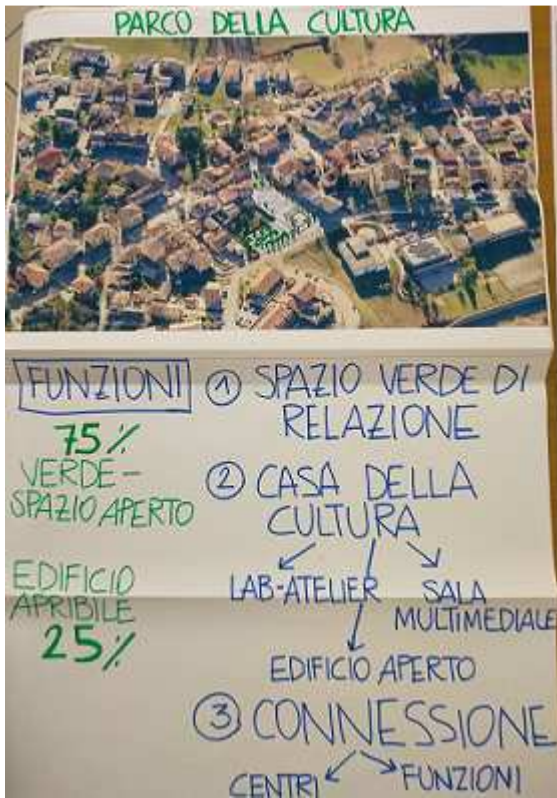 PARCO DELLA CULTURA
FUNZIONI
75%
VERDE-
SPAZIO APERTO
EDIFICIO
APRIBILE
25%
① SPAZIO VERDE DI
RELAZIONE
② CASA DELLA
CULTURA
LAB-ATELIER
SALA
MULTIMEDIALE
EDIFICIO APERTO
③ CONNESSIONE
CENTRI
FUNZIONI